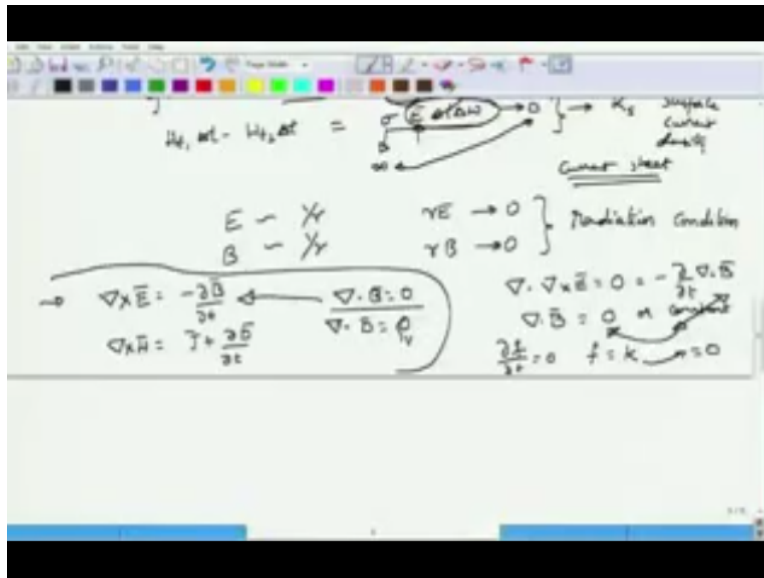 H_{t1} Δl - H_{t2} Δl = σ E Δl Δw → 0 } → K_s surface
current
density
∞
Current sheet
E ~ 1/r rE → 0 } Radiation Condition
B ~ 1/r rB → 0
→ ∇×E̅ = -∂B̅/∂t ← ∇·B̅ = 0 ∇·∇×E̅ = 0 = -∂/∂t ∇·B̅
∇·D̅ = ρ_v ∇·B̅ = 0 or constant
∇×H̅ = J̅ + ∂D̅/∂t ∂f/∂t = 0 f = k → = 0